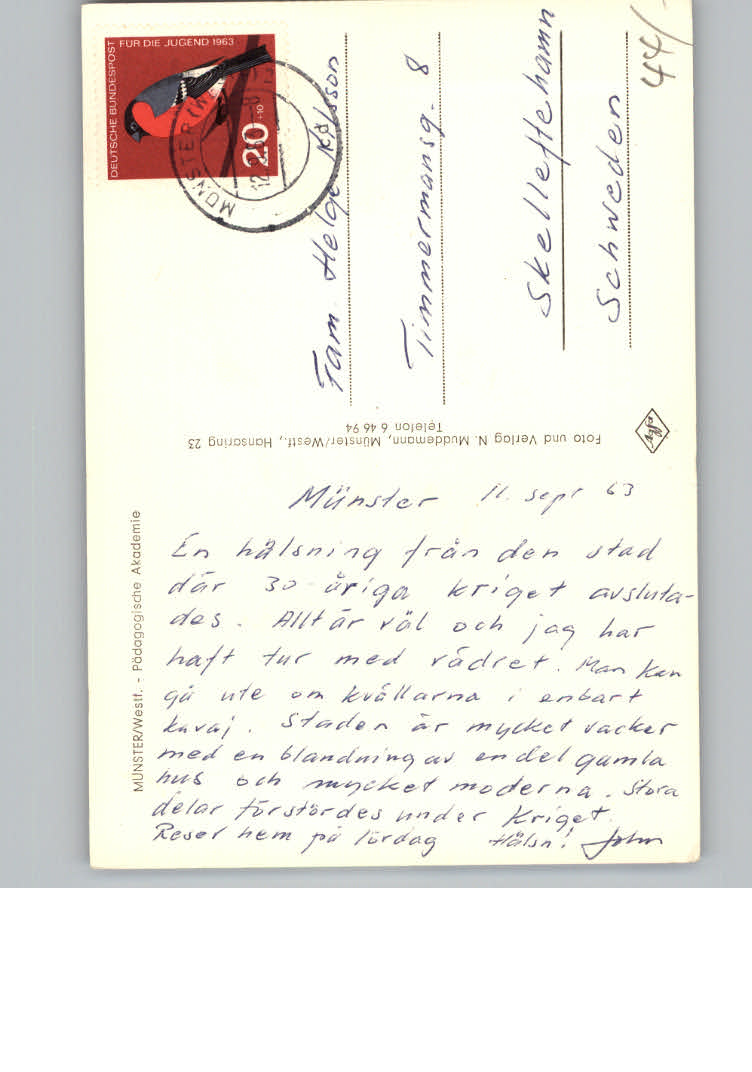 DEUTSCHE BUNDESPOST
FÜR DIE JUGEND 1963
20 +10
MÜNSTER (W
12.9.63
44/-
Fam. Helge
Timmermansg. 8
Skelleftehamn
Schweden
Foto und Verlag N. Muddemann, Münster/Westf., Hansaring 23
Telefon 6 46 94
MÜNSTER/Westf. - Pädagogische Akademie
Münster 11. sept 63
En hälsning från den stad
där 30-åriga kriget avsluta-
des. Allt är väl och jag har
haft tur med vädret. Man kan
gå ute om kvällarna i enbart
kavaj. Staden är mycket vacker
med en blandning av en del gamla
hus och mycket moderna. Stora
delar förstördes under kriget.
Reser hem på lördag Hälsn! John